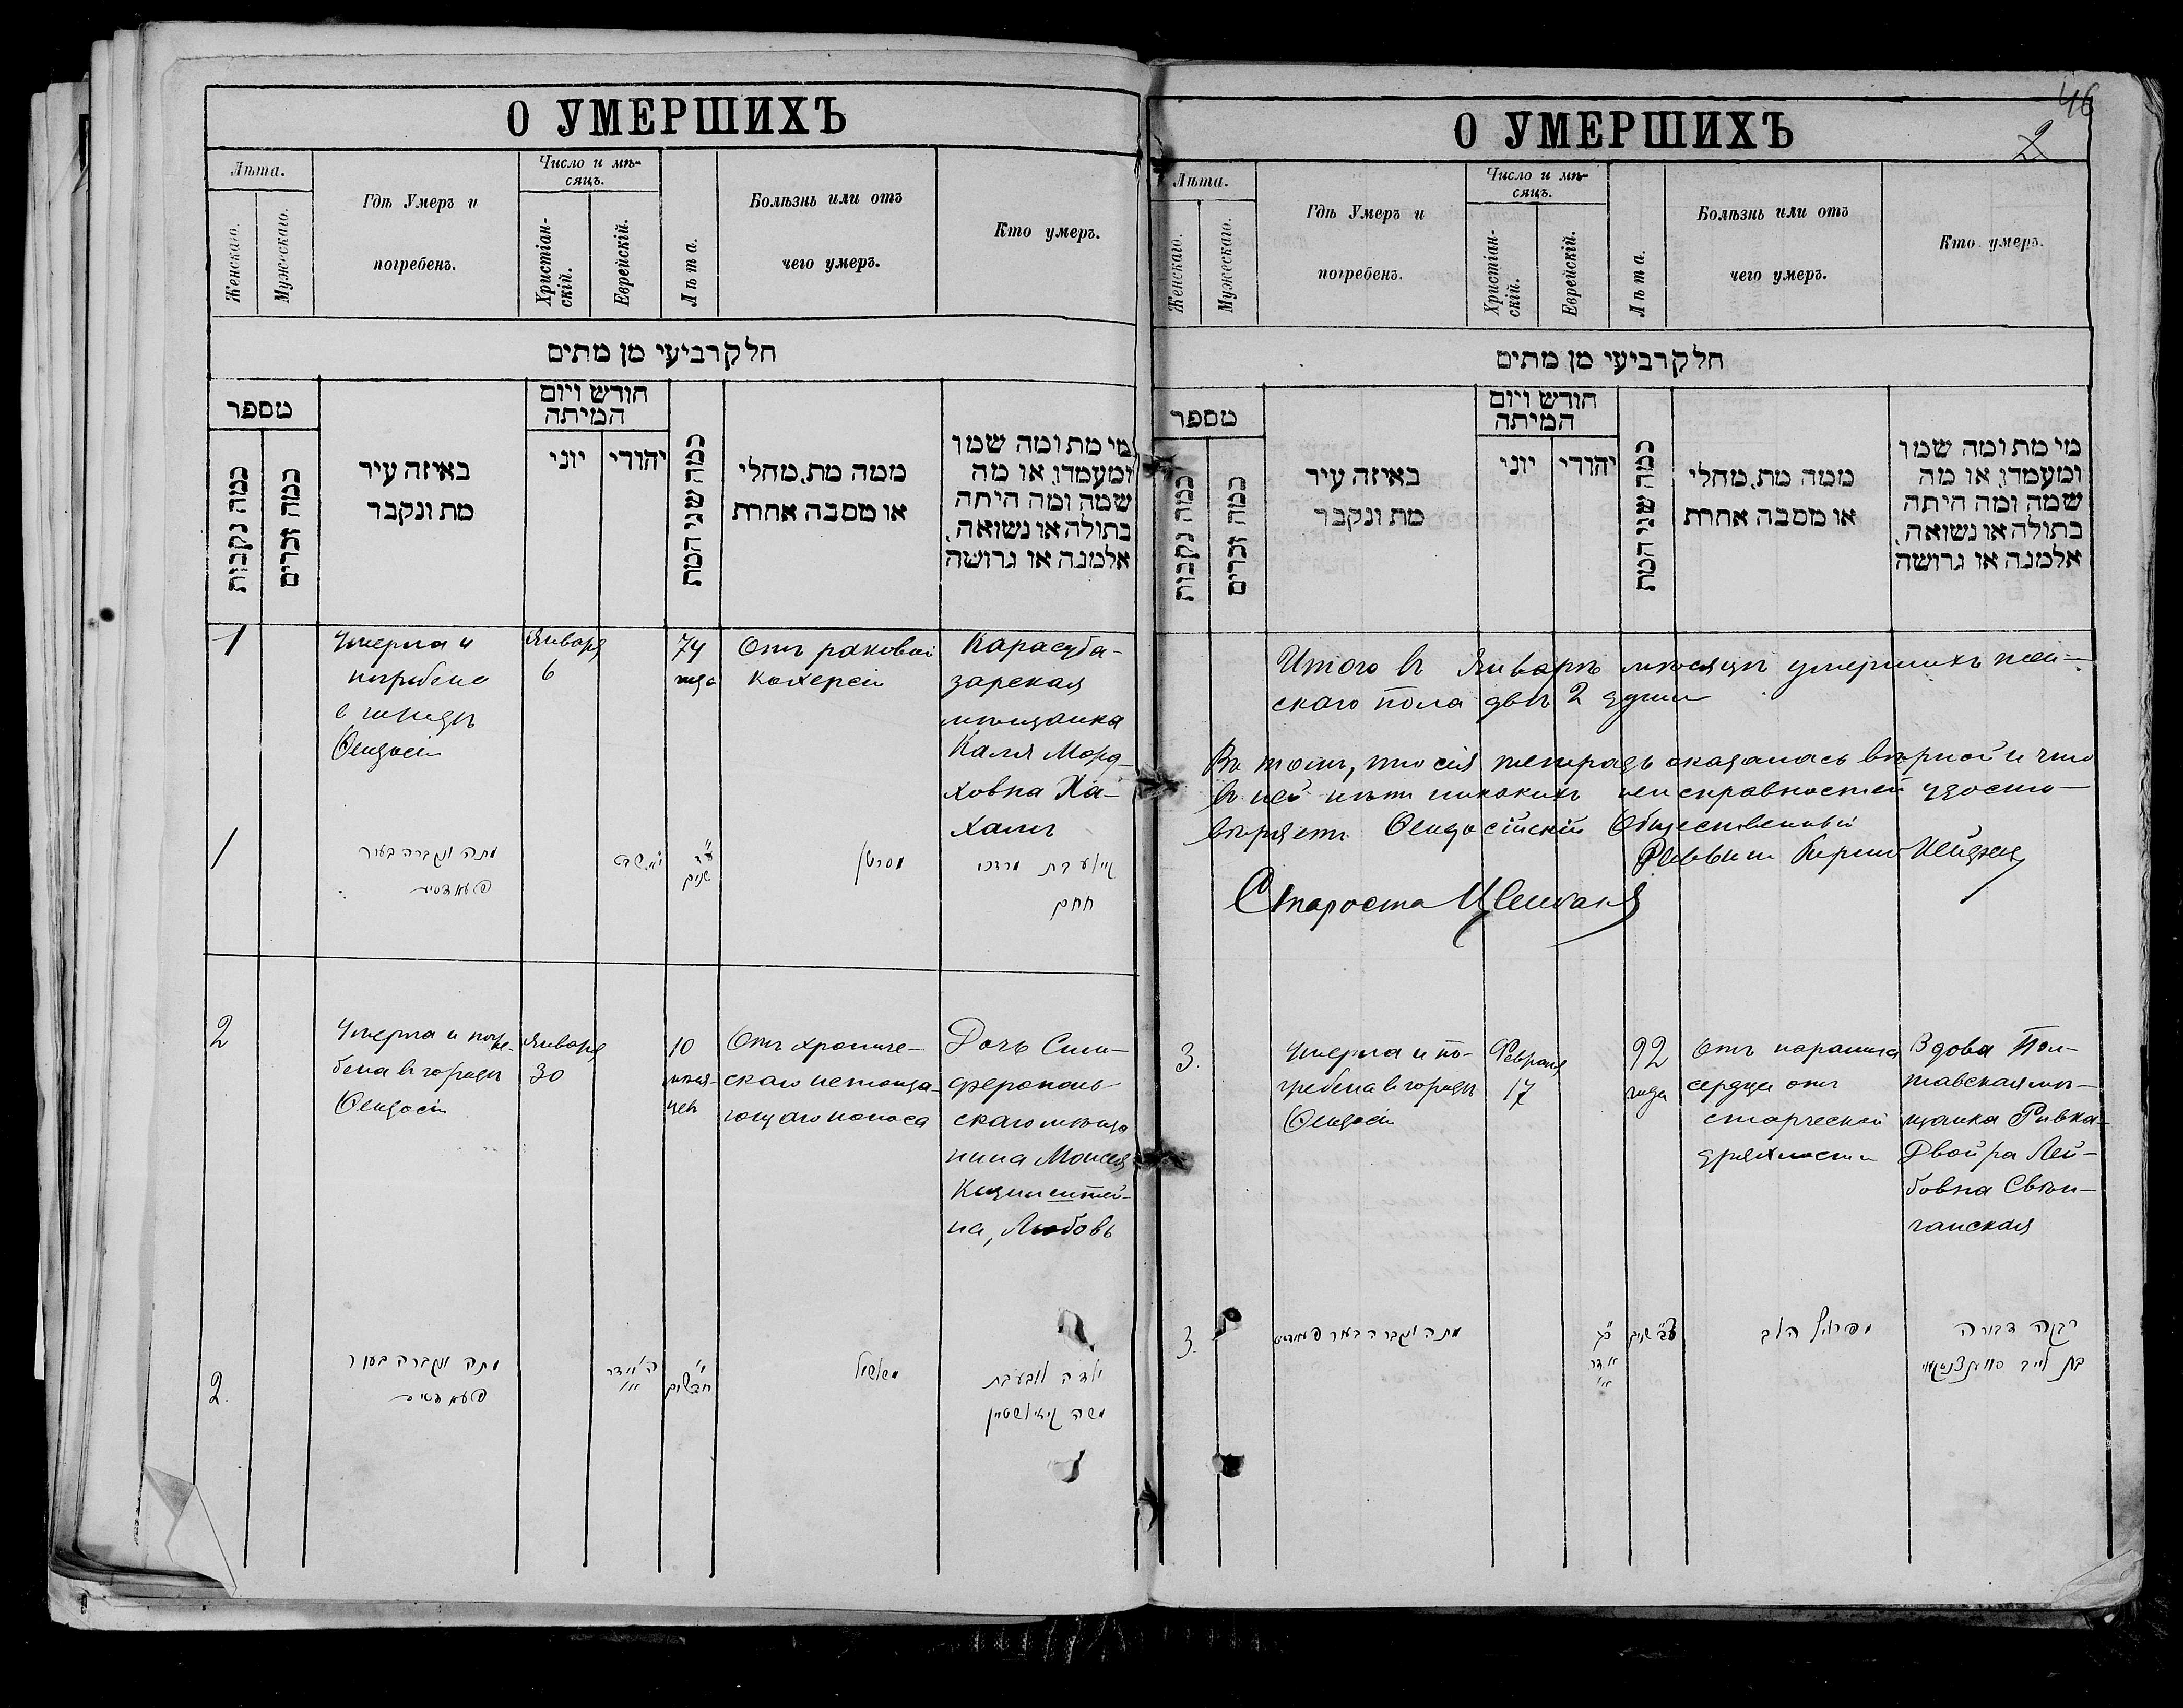 О УМЕРШИХЪ
Лѣта.
Женскаго.
Мужескаго.
Гдѣ Умеръ и
погребенъ.
Число и мѣ-
сяцъ.
Христіан-
скій.
Еврейскій.
Лѣта.
Болѣзнь или отъ
чего умеръ.
Кто умеръ.
חלק רביעי מן מתים
מספר
כמה נקבות
כמה זכרים
באיזה עיר
מת ונקבר
חודש ויום
המיתה
יוני
יהודי
כמה שני המת
ממה מת, מחלי
או מסבה אחרת
מי מת ומה שמו
ומעמדו, או מה
שמה ומה היתה
בתולה או נשואה,
אלמנה או גרושה
1
Умерла и
погребена
в городѣ
Ѳеодосіи
Января
6
74
года
Отъ раковой
кахексіи
Карасуба-
зарская
мѣщанка
Каля Морд-
ховна Ха-
хамъ
1
מתה ונקברה בעיר
שבט
ע״ד
שנים
מסרטן
בת מרדכי
חחם
2
Умерла и погре-
бена въ городѣ
Ѳеодосіи
Января
30
10
мѣся-
цевъ
Отъ хрониче-
скаго истоща-
ющаго поноса
Дочь Сим-
ферополь-
скаго мѣща
нина Моисея
на, Любовь
2.
מתה ונקברה בעיר
י״
חדשים
משלשול
ילדה
משה
О УМЕРШИХЪ
46
2
Лѣта.
Женскаго.
Мужескаго.
Гдѣ Умеръ и
погребенъ.
Число и мѣ-
сяцъ.
Христіан-
скій.
Еврейскій.
Лѣта.
Болѣзнь или отъ
чего умеръ.
Кто умеръ.
חלק רביעי מן מתים
מספר
כמה נקבות
כמה זכרים
באיזה עיר
מת ונקבר
חודש ויום
המיתה
יוני
יהודי
כמה שני המת
ממה מת, מחלי
או מסבה אחרת
מי מת ומה שמו
ומעמדו, או מה
שמה ומה היתה
בתולה או נשואה,
אלמנה או גרושה
Итого въ Январѣ мѣсяцѣ умершихъ жен-
скаго пола двѣ 2 души
Въ томъ, что сія тетрадь оказалась вѣрной и что
въ ней нѣтъ никакихъ неисправностей удосто-
вѣряетъ Ѳеодосійскій Общественный
Раввинъ
Староста
3.
Умерла и по-
гребена въ городѣ
Ѳеодосіи
Февраля
17
92
года
Отъ паралича
сердца отъ
старческой
дряхлости
Вдова Пол-
тавская мѣ-
щанка Ривка-
Двойра Лей-
бовна Свѣн-
чанская
3.
מתה ונקברה בעיר
אדר
צ״ב שנים
הלב
רבקה דבורה
בת לייב